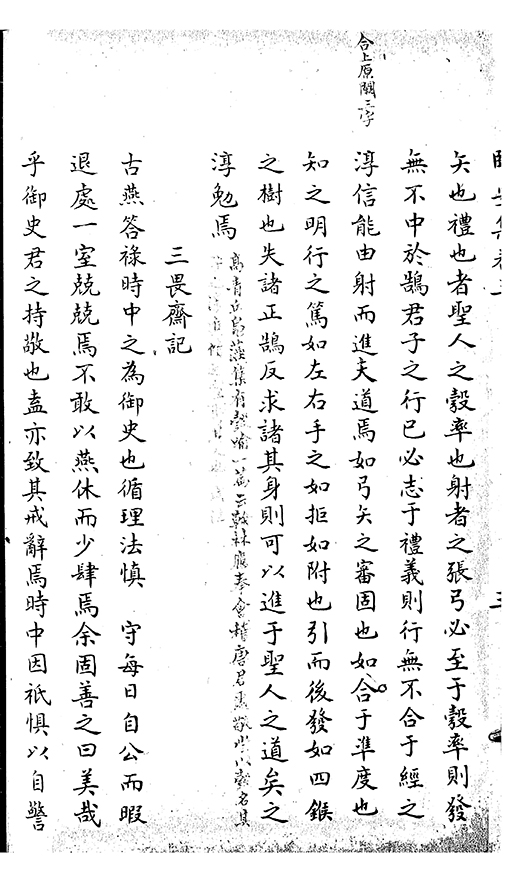 合上原闕三字
卧 集卷
矢也禮也者聖人之彀率也射者之張弓必至于彀率則發
無不中於鵠君子之行己必志于禮義則行無不合于經之
淳信能由射而進夫道焉如弓矢之審固也如合于準度也
知之明行之篤如左右手之如拒如附也引而後發如四鍭
之樹也失諸正鵠反求諸其身則可以進于聖人之道矣之
淳勉焉
高青丘鳧藻集有彀喻一篇云
三畏齋記
古燕答祿時中之為御史也循理法慎 守每日自公而暇
退處一室兢兢焉不敢以燕休而少肆焉余固善之曰美哉
乎御史君之持敬也盍亦致其戒辭焉時中因祇惧以自警